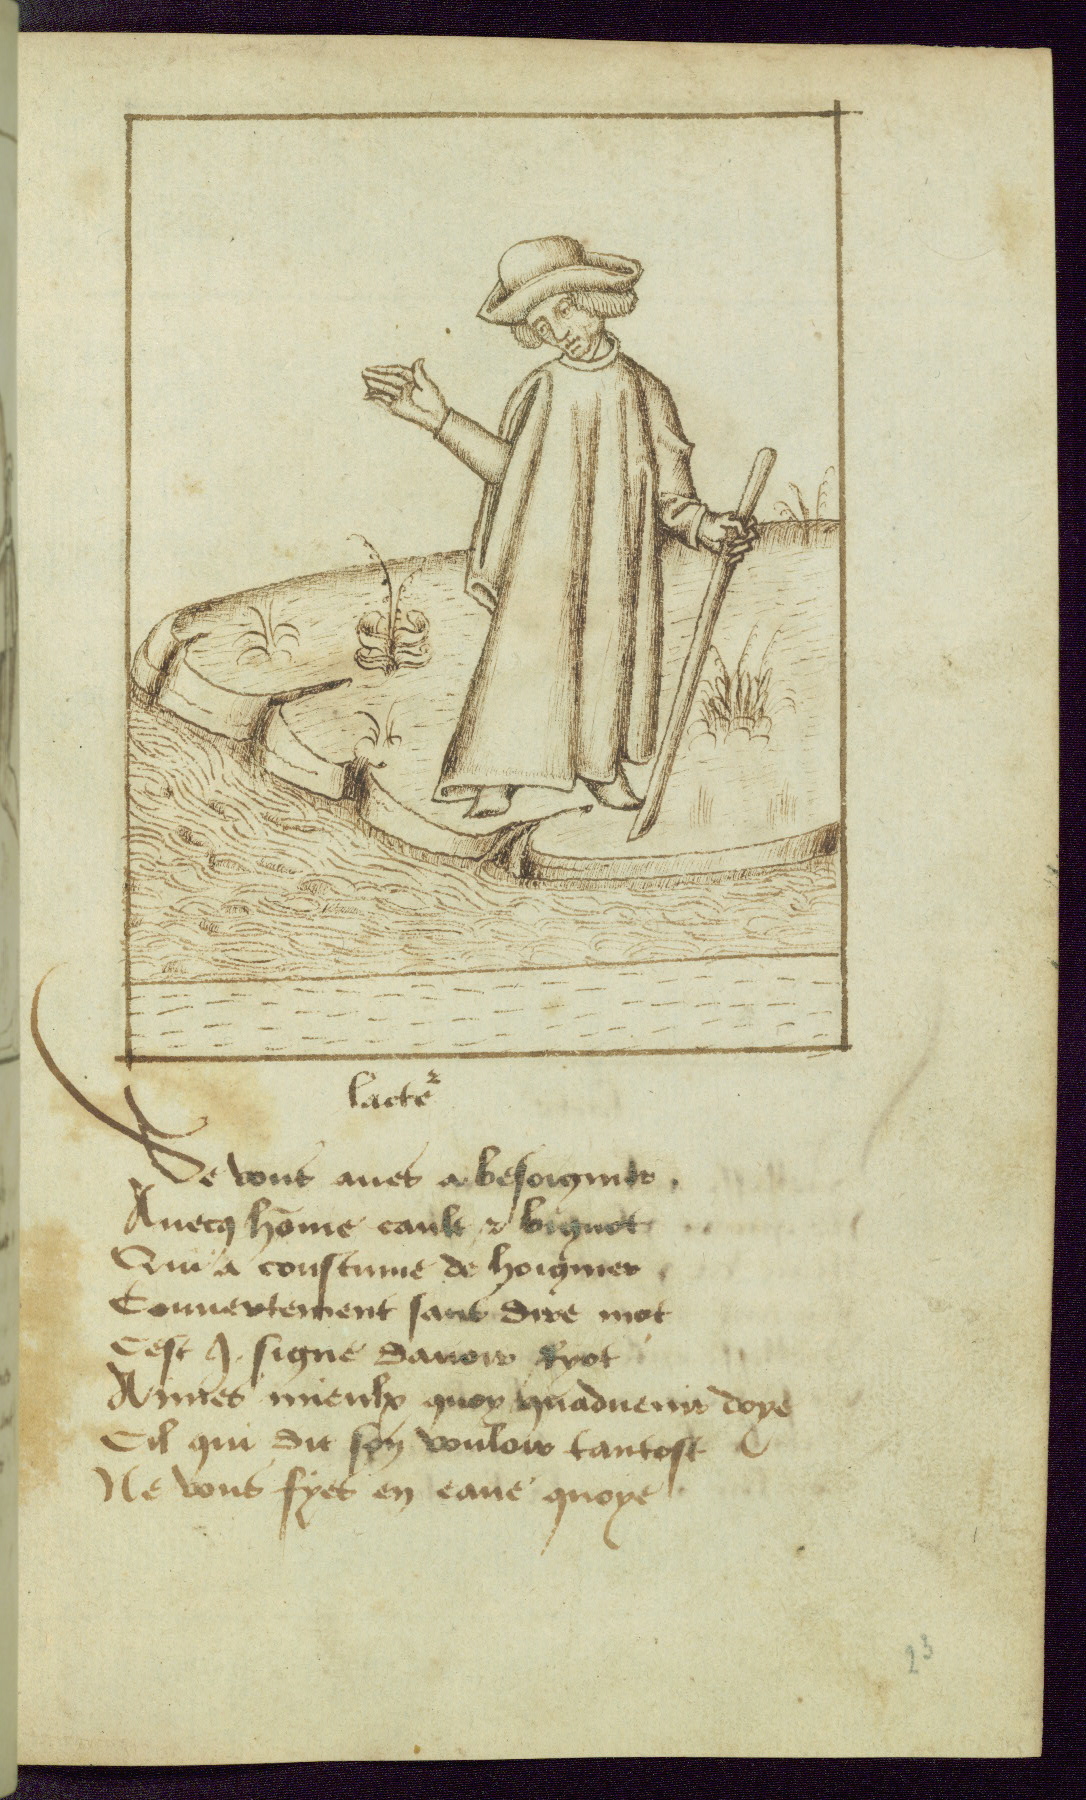 lacteʳ
Se vous aues a besoigner
Auecq hōme cault & bignot
Qui a coustume de hoigner
Couuertement sans dire mot
Cest j. signe dauoir Ryot
Aimes mieulx quoy quaduenir doye
Cil qui dit son vouloir tantost
Ne vous fyes en eaue quoye
23